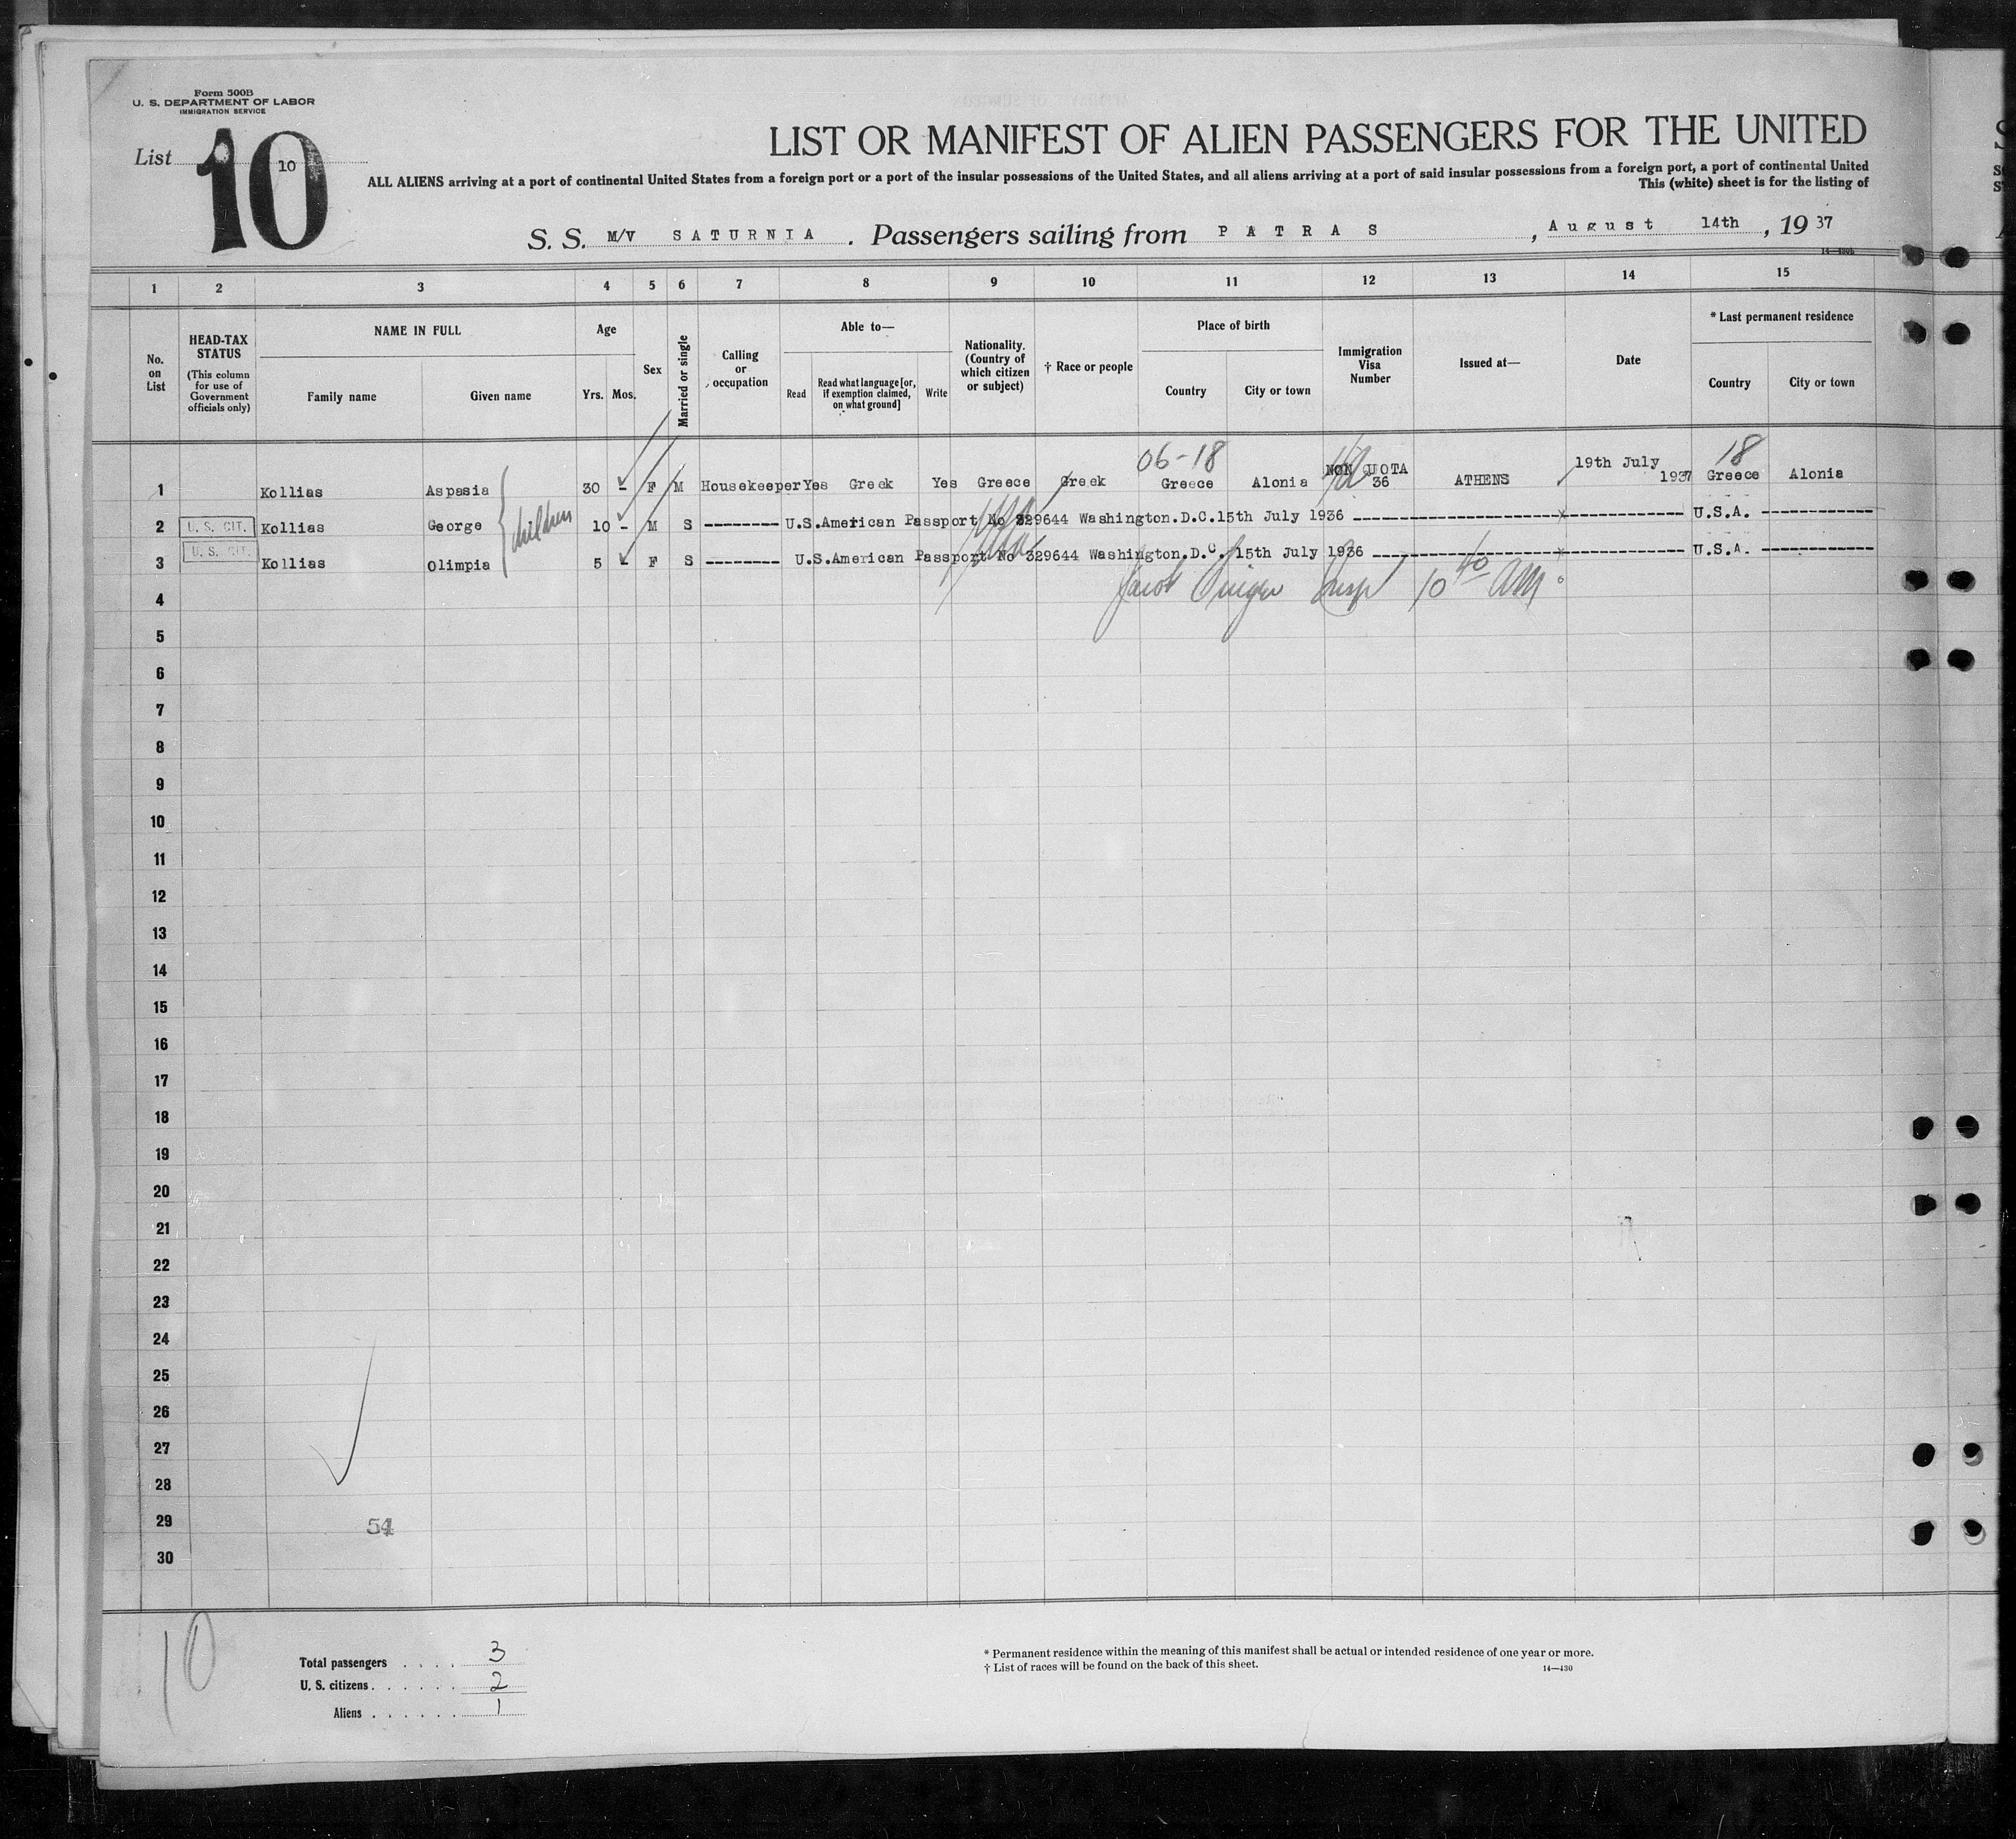 Form 500B
U. S. DEPARTMENT OF LABOR
IMMIGRATION SERVICE
List 10
10
LIST OR MANIFEST OF ALIEN PASSENGERS FOR THE UNITED
ALL ALIENS arriving at a port of continental United States from a foreign port or a port of the insular possessions of the United States, and all aliens arriving at a port of said insular possessions from a foreign port, a port of continental United
This (white) sheet is for the listing of
S. S. M/V SATURNIA . Passengers sailing from PATRAS , August 14th , 19 37
14—430b
1 2 3 4 5 6 7 8 9 10 11 12 13 14 15
No. on List
HEAD-TAX STATUS
(This column for use of Government officials only)
NAME IN FULL
Family name Given name
Age
Yrs. Mos.
Sex
Married or single
Calling or occupation
Able to—
Read Read what language [or, if exemption claimed, on what ground] Write
Nationality. (Country of which citizen or subject)
† Race or people
Place of birth
Country City or town
Immigration Visa Number
Issued at—
Date
* Last permanent residence
Country City or town
06-18 18
1 Kollias Aspasia 30 - F M Housekeeper Yes Greek Yes Greece Greek Greece Alonia NON QUOTA 36 ATHENS 19th July 1937 Greece Alonia
children
2 U. S. CIT. Kollias George 10 - M S -------- U.S.American Passport No 329644 Washington.D.C.15th July 1936 ---------- U.S.A. ----------
3 U. S. CIT. Kollias Olimpia 5 - F S -------- U.S.American Passport No 329644 Washington.D.C. 15th July 1936 ---------- U.S.A. ----------
4 Jacob Insp 10 40 AM
5
6
7
8
9
10
11
12
13
14
15
16
17
18
19
20
21
22
23
24
25
26
27
28
29 54
30
10
Total passengers . . . . 3
U. S. citizens . . . . . . 2
Aliens . . . . . . 1
* Permanent residence within the meaning of this manifest shall be actual or intended residence of one year or more.
† List of races will be found on the back of this sheet.
14—430